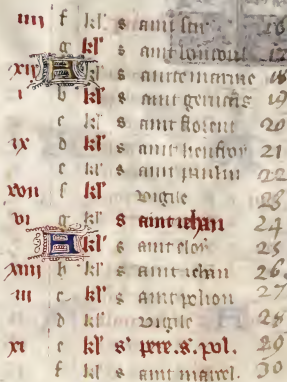 iiii f kl' s aint 16
g kl' s aint 17
xii A kl' s ainte marine 18
i b kl' s aint geruais 19
c kl' s aint florent 20
ix d kl' s aint leuffroy 21
e kl' s aint paulin 22
xvii f kl' vigile 23
vi g kl' s aint iehan 24
A kl' s aint eloy 25
xiiii b kl' s aint iehan 26.
iii c kl' s aint 27
d kl' vigile 28
xi e kl' s' pere. s. pol. 29
f kl' s aint marcel. 30